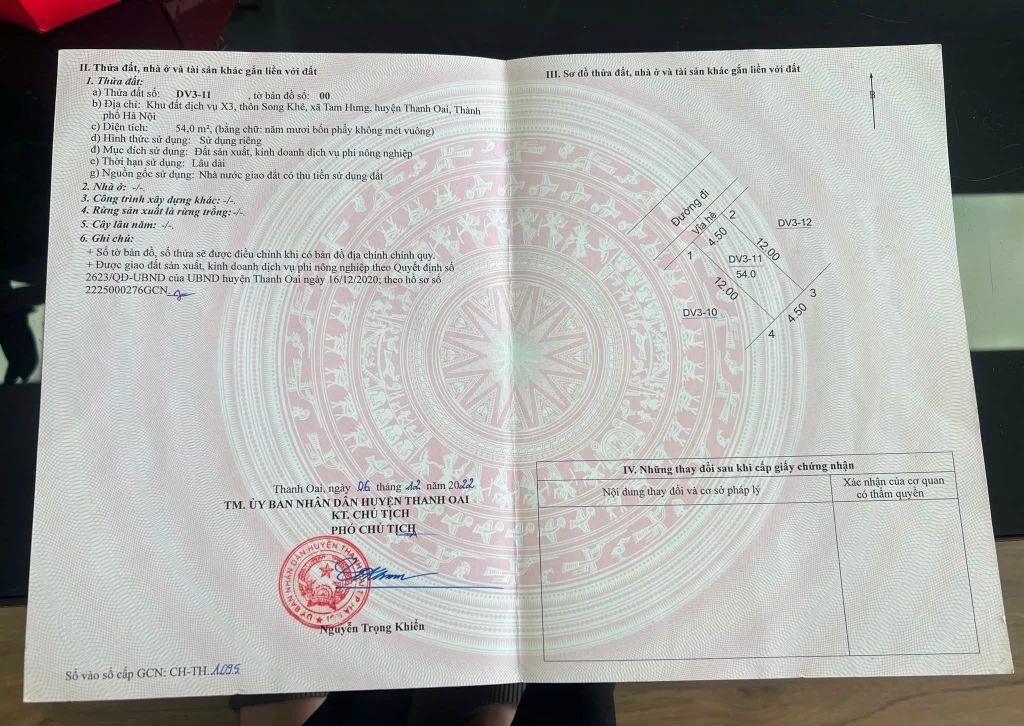 II. Thửa đất, nhà ở và tài sản khác gắn liền với đất
1. Thửa đất:
a) Thửa đất số: DV3-11 , tờ bản đồ số: 00
b) Địa chỉ: Khu đất dịch vụ X3, thôn Song Khê, xã Tam Hưng, huyện Thanh Oai, Thành
phố Hà Nội
c) Diện tích: 54,0 m², (bằng chữ: năm mươi bốn phẩy không mét vuông)
d) Hình thức sử dụng: Sử dụng riêng
đ) Mục đích sử dụng: Đất sản xuất, kinh doanh dịch vụ phi nông nghiệp
e) Thời hạn sử dụng: Lâu dài
g) Nguồn gốc sử dụng: Nhà nước giao đất có thu tiền sử dụng đất
2. Nhà ở: -/-.
3. Công trình xây dựng khác: -/-.
4. Rừng sản xuất là rừng trồng:-/-.
5. Cây lâu năm: -/-.
6. Ghi chú:
+ Số tờ bản đồ, số thửa sẽ được điều chỉnh khi có bản đồ địa chính chính quy.
+ Được giao đất sản xuất, kinh doanh dịch vụ phi nông nghiệp theo Quyết định số
2623/QĐ-UBND của UBND huyện Thanh Oai ngày 16/12/2020; theo hồ sơ số
2225000276GCN.
Thanh Oai, ngày 06 tháng 12 năm 2022
TM. ỦY BAN NHÂN DÂN HUYỆN THANH OAI
KT. CHỦ TỊCH
PHÓ CHỦ TỊCH
ỦY BAN NHÂN DÂN HUYỆN THANH
Nguyễn Trọng Khiển
Số vào sổ cấp GCN: CH-TH.1095
III. Sơ đồ thửa đất, nhà ở và tài sản khác gắn liền với đất
B
Đường đi
Vỉa hè
2
DV3-12
4.50
1
12.00
DV3-11
54.0
12.00
3
DV3-10
4.50
4
IV. Những thay đổi sau khi cấp giấy chứng nhận
Nội dung thay đổi và cơ sở pháp lý
Xác nhận của cơ quan
có thẩm quyền